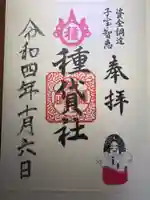 資金調達
子宝智恵
奉拝
種貸社
令和四年十月六日